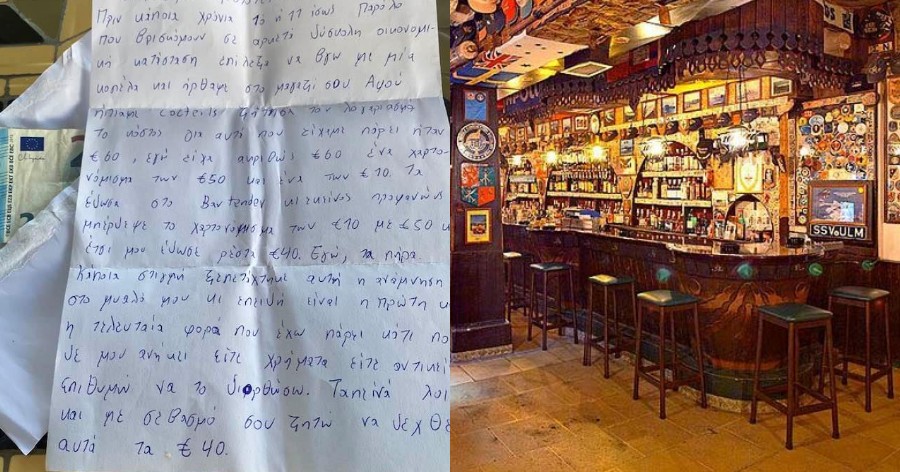 Πριν κάποια χρόνια 10 ή 11 ίσως παρόλο
που βρισκόμουν σε αρκετά δύσκολη οικονομι-
κή κατάσταση επίλεξα να βγω με μία
κοπέλα και ήρθαμε στο μαγαζί σου Αφού
ήπιαμε cocteils ζήτησα τον λογαριασμό
Το κόστος για αυτά που είχαμε πάρει ήταν
€60, εγώ είχα ακριβώς €60 ένα χαρτο-
νόμισμα των €50 και ένα των €10. Τα
έδωσα στο Bartender κι εκείνος προφανώς
μπέρδεψε το χαρτονόμισμα των €10 με €50 κ
έτσι μου έδωσε ρέστα €40. Εγώ, τα πήρα.
Κάποια στιγμή ξεπετάχτηκε αυτή η ανάμνηση
στο μυαλό μου κι επειδή είναι η πρώτη κ
η τελευταία φορά που έχω πάρει κάτι πο
δε μου ανήκει είτε χρήματα είτε αντικεί
Επιθυμώ να το διορθώσω. Ταπεινά λοι
και με σεβασμό σου ζητώ να δεχθε
αυτά τα €40.
SSV ULM